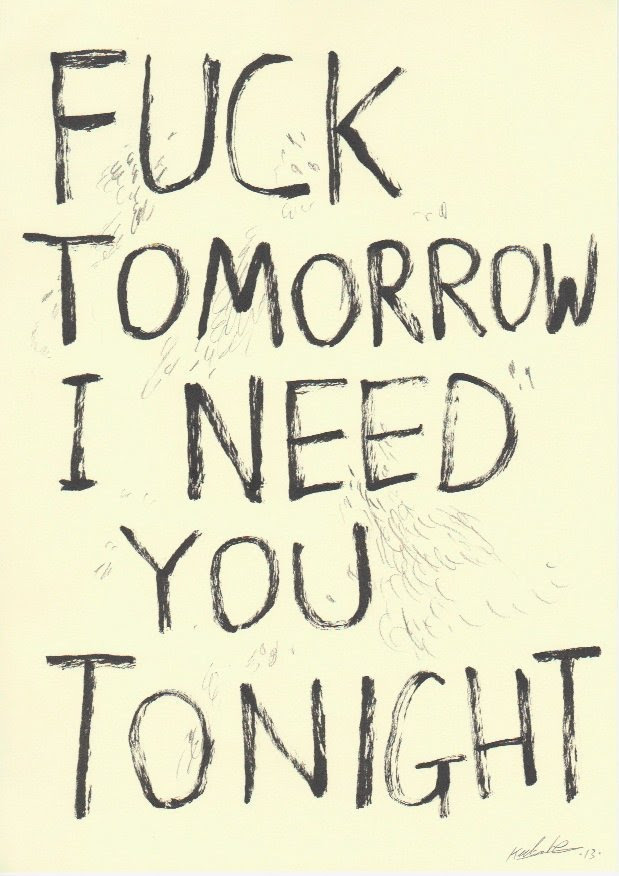 FUCK
TOMORROW
I NEED
YOU
TONIGHT
-13-